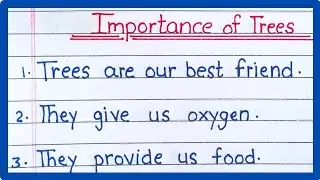 Importance of Trees
1. Trees are our best friend.
2. They give us oxygen.
3. They provide us food.